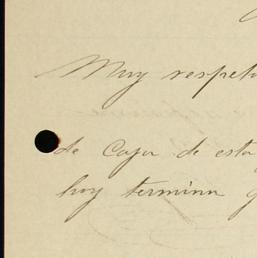 Muy respeta
de Caja de esta
hoy termina q